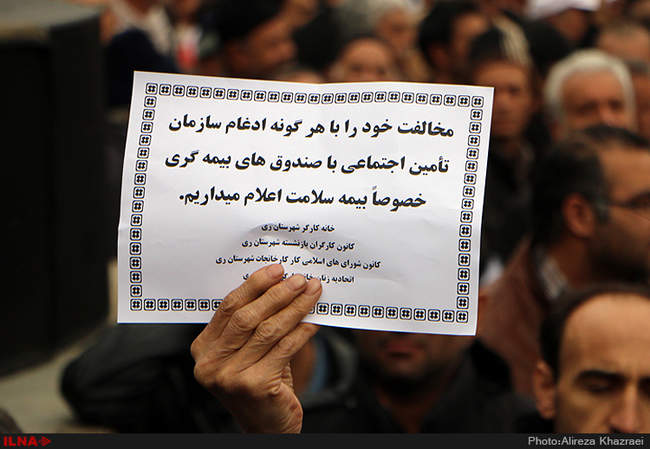 مخالفت خود را با هر گونه ادغام سازمان
تأمین اجتماعی با صندوق های بیمه گری
خصوصاً بیمه سلامت اعلام میداریم.
خانه کارگر شهرستان ری
کانون کارگران بازنشسته شهرستان ری
کانون شورای های اسلامی کار کارخانجات شهرستان ری
اتحادیه زنان شهرستان ری
ILNA
Photo:Alireza Khazraei